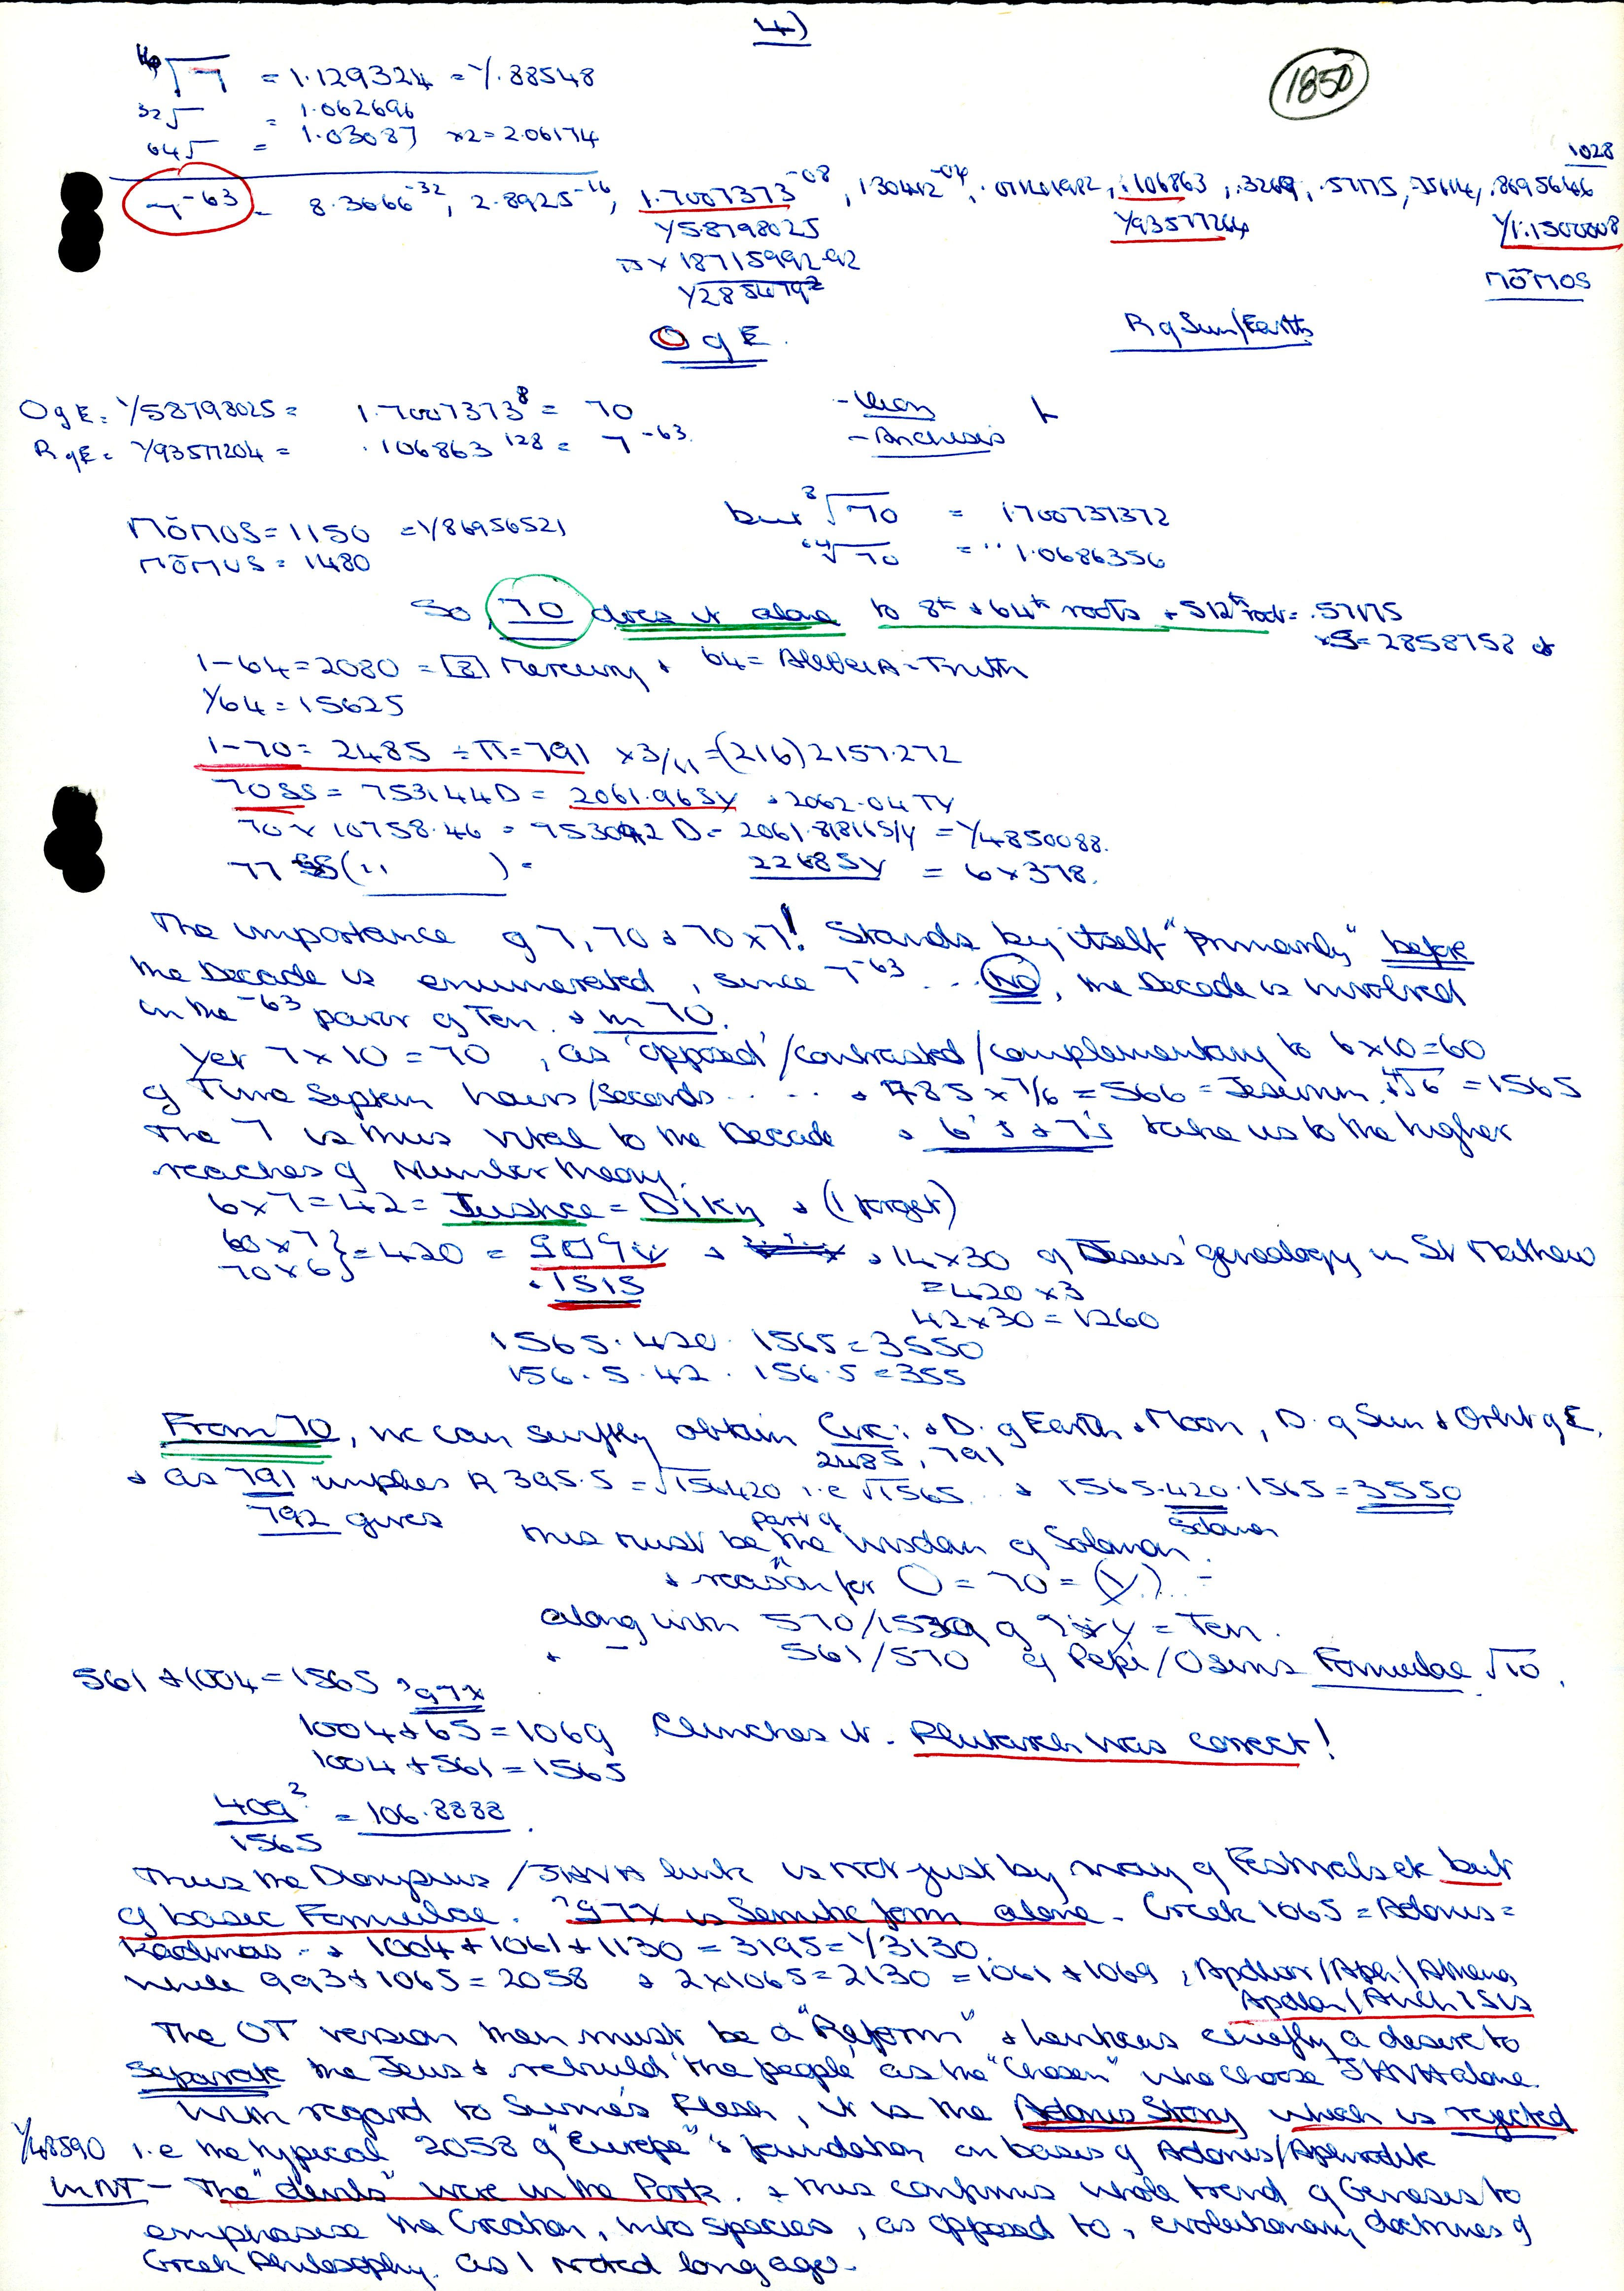 4)
1850
16√7 = 1.129324 = 1/.88548
32√ = 1.062696
64√ = 1.03087 x2 = 2.06174
1028
7^-63 = 8.3666^-32, 2.8925^-16, 1.7007373^-08, .106863, .3269, .57175, .75614, .8695646
1/58798025 1/93577264 1/1.1500008
π x 18715992.92
MŌMOS
O g E. R g Sun/Earth
O g E = 1/58798025 = 1.7007373^8 = 70
R g E = 1/93577204 = .106863^128 = 7^-63
- Anchises
MŌMOS = 1150 = 1/86956521 but 8√70 = 1700737372
MŌMUS = 1480 64√70 = " 1.0686356
So, 70 does it alone to 8th & 64th roots + 512th root = .57175
x5 = 2858758
1-64 = 2080 = [8] Mercury & 64 = AletheiA = Truth
1/64 = 15625
1-70 = 2485 ÷ π = 791 x 3/11 = (216) 2157.272
70 SS = 753144 D = 2061.96 SY & 2062.04 TY
70 x 10758.46 = 753092 D = 2061.81816 S/Y = 1/4850088.
77 SS ( " ) = 2268 SY = 6 x 378.
The importance g 7, 70 & 70 x 7! Stands by itself "primarily" before
the Decade is enumerated, since 7^-63 ... No, the Decade is involved
in the -63 power g Ten. & in 70.
Yet 7 x 10 = 70, as 'opposed'/contrasted/complementary to 6 x 10 = 60
g Time System hours/seconds .... & 485 x 7/6 = 566 = 4√6 = 1565
The 7 is thus vital to the Decade & 6's & 7's take us to the higher
reaches g Number theory.
6 x 7 = 42 = Justice = Diky & (I forget)
60 x 7 } = 420 = & 14 x 30 g Jesus' genealogy in St Mathew
70 x 6 } .1515 = 420 x 3
42 x 30 = 1260
1565.420.1565 = 3550
156.5.42.156.5 = 355
From 70, we can swiftly obtain Circ: & D. g Earth & Moon, D. g Sun & Orbit g E.
2485, 791
& as 791 implies R 395.5 = √156420 i.e √1565 .. & 1565.420.1565 = 3550
792 gives this must be the part g Wisdom g Solomon. Solomon
& "reason for O = 70 = (Y) -
along with 570/1530 = Ten.
& 561/570 g Pepi/Osiris Formulae √10.
561 + 1004 = 1565
1004 + 65 = 1069 Clinches it. Plutarch was correct!
1004 + 561 = 1565
409² / 1565 = 106.8888.
Thus the Dionysus/JHVH link is not just by way g Festivals etc but
g basic Formulae. is Semitic form alone. Greek 1065 = Adonis =
Kadmos .. & 1004 + 1061 + 1130 = 3195 = 1/3130.
while 993 + 1065 = 2058 & 2 x 1065 = 2130 = 1061 + 1069, Apollon/Aph/Athena
Apollon/AnchISIs
The OT version then must be a "Reform" & chiefly a desire to
separate the Jews & rebuild 'the people' as the "Chosen" who choose JHVH alone.
With regard to Swine's Flesh, it is the Adonis Story which is rejected
1/48590 i.e the typical 2058 g "Europe"'s foundation on basis g Adonis/Aphrodite
In NT - The "devils" were in the Pork. & this confirms whole trend g Genesis to
emphasise the Creation, into species, as opposed to, evolutionary doctrines g
Greek Philosophy. as I noted long ago.